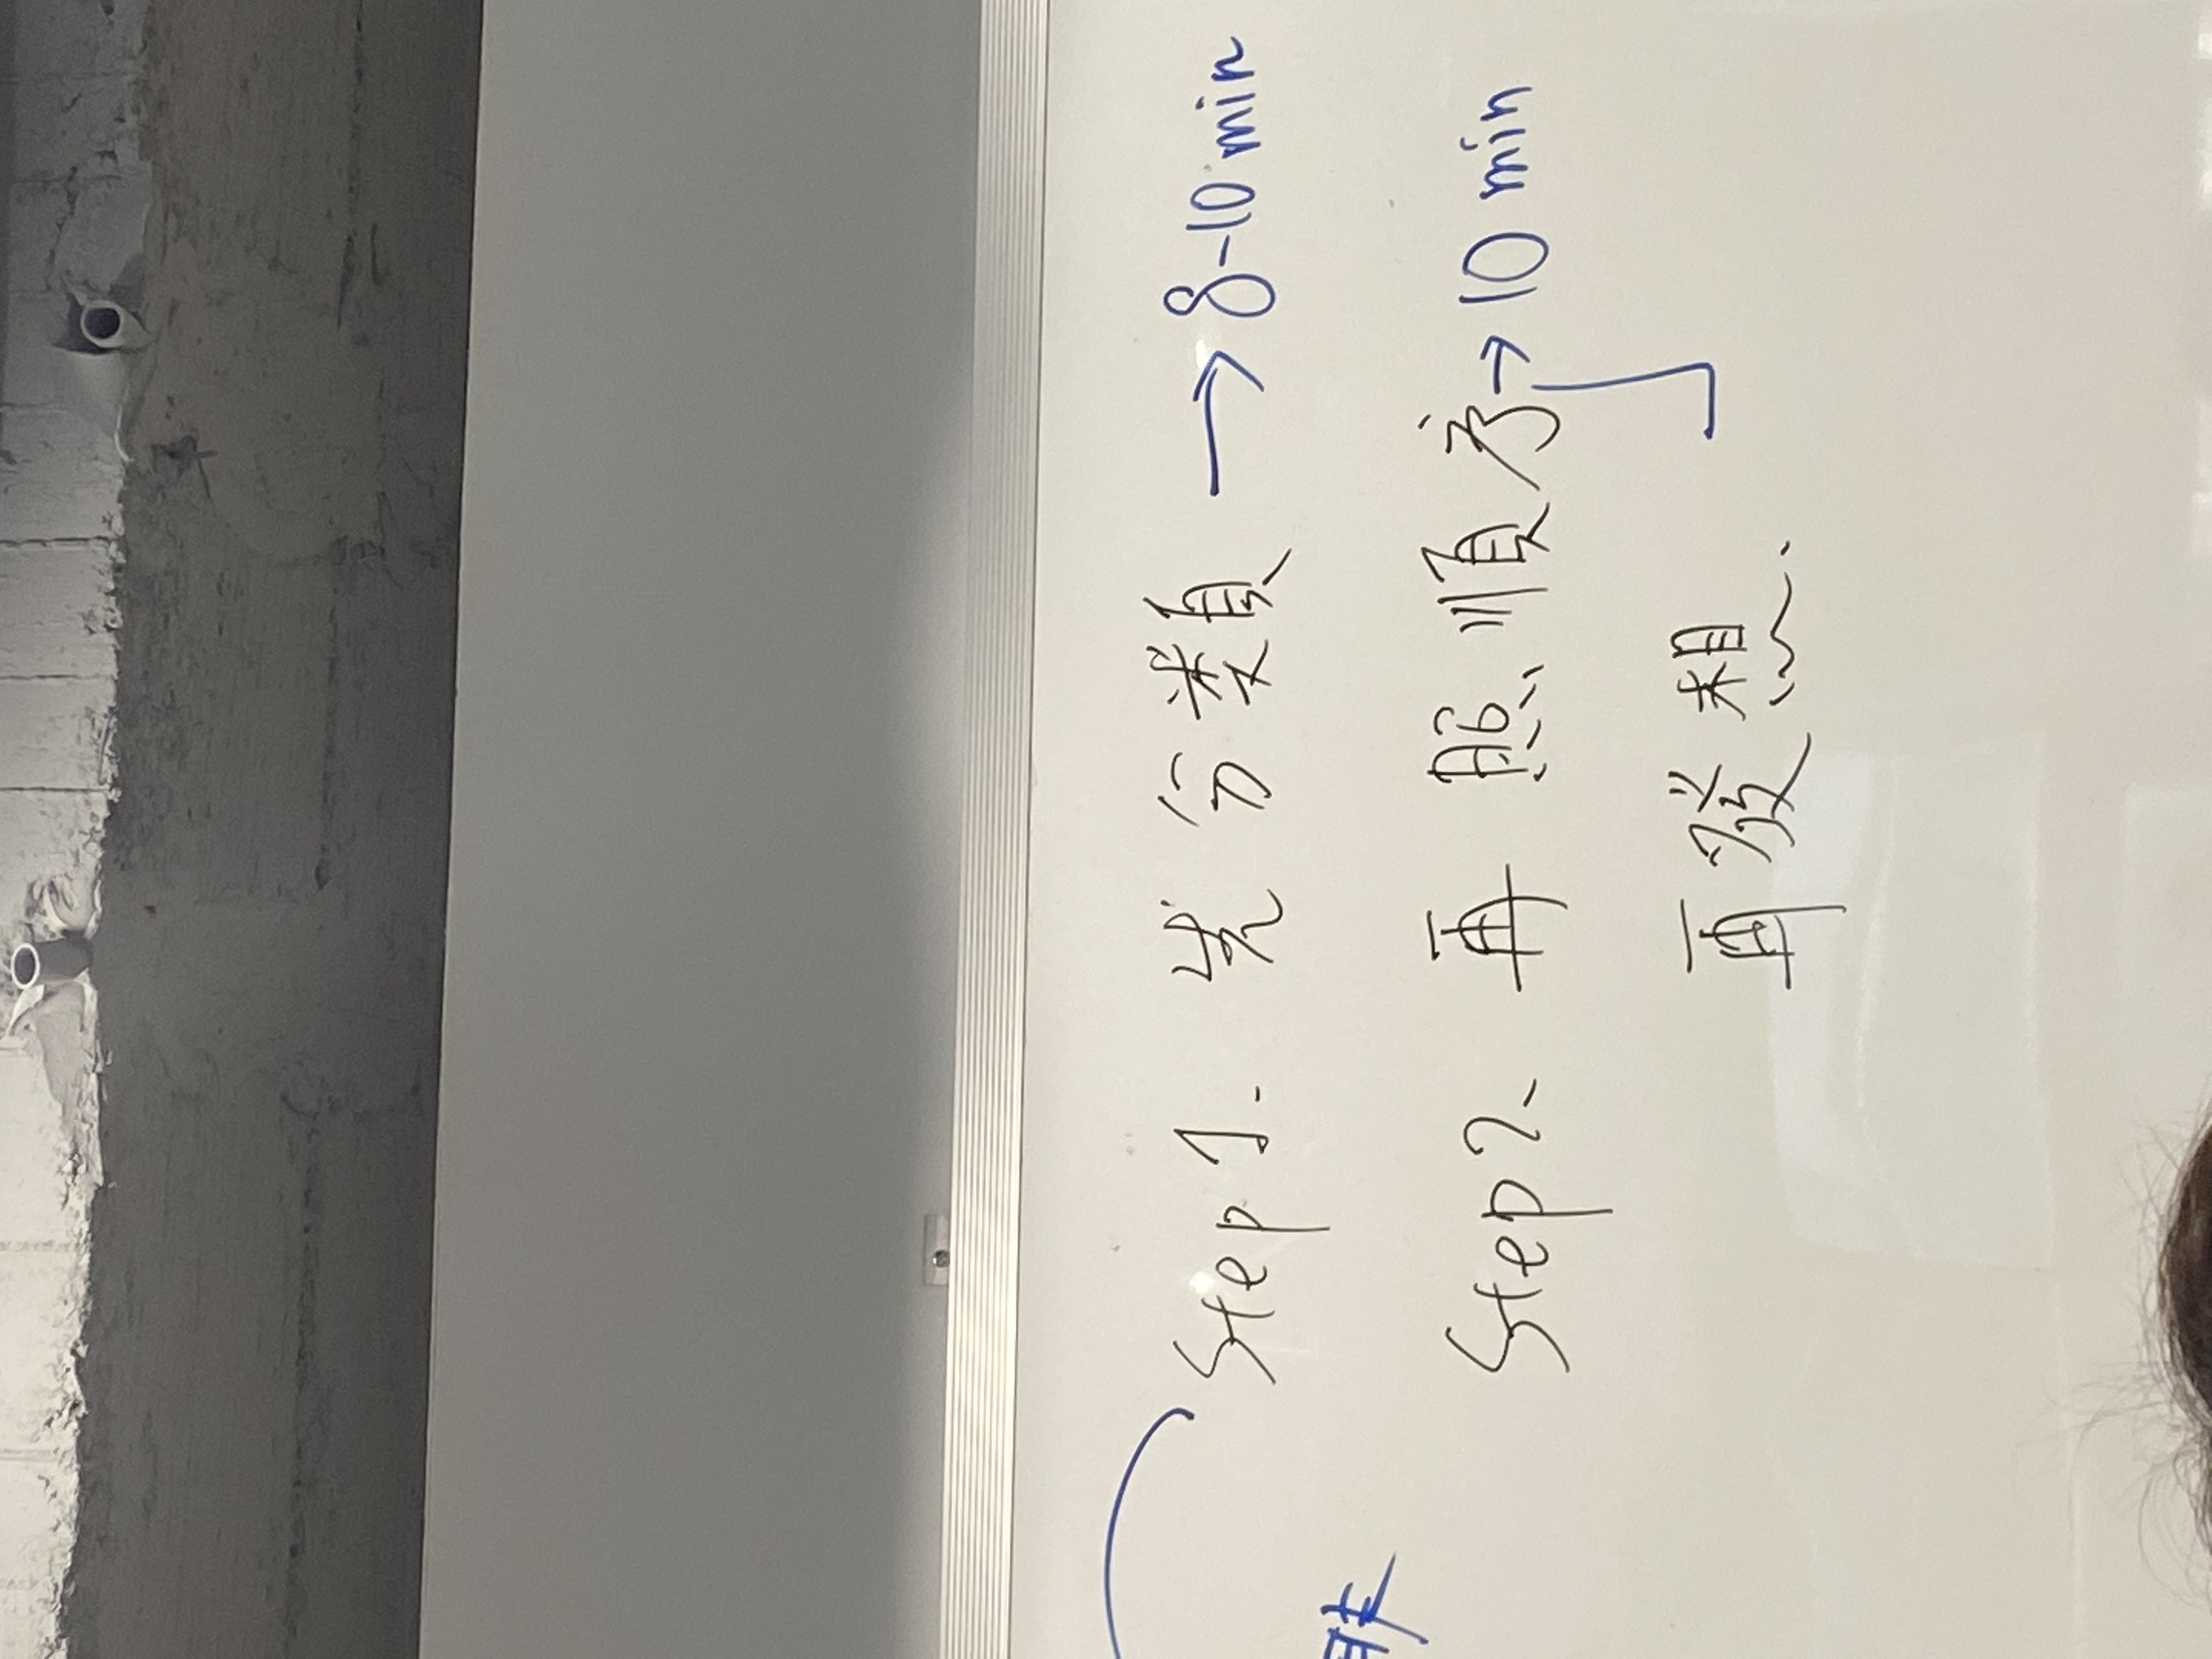 Step 1. 先分類 → 8-10 min
Step 2、再照順序 → 10 min
再發想.